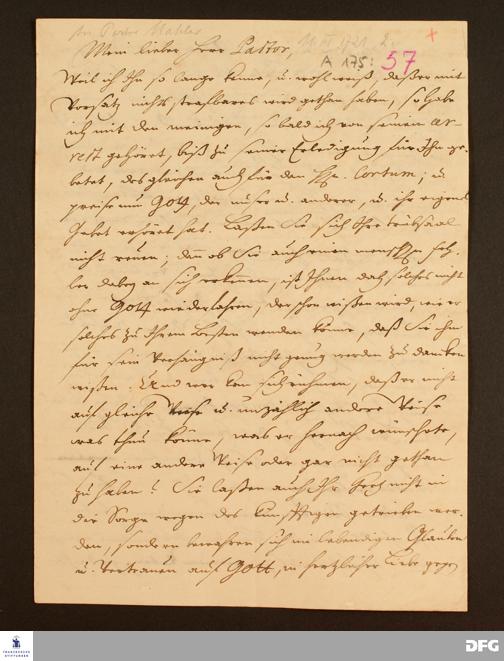 An Pastor Mahler
Mein lieber Herr Pastor,
A 175: 57
Weil ich Ihn so lange kenne, u. wohl weiß, daß er mit
Vorsatz nichts strafbares wird gethan haben, so habe
ich mit den meinigen, so bald ich von seinem ar-
rest gehöret, biß zu seiner Erledigung für Ihn ge-
betet, desgleichen auch für den Hn. Cortum; u
preise nun Gott, der unser u. anderer, u. ihr eigenes
Gebet erhöret hat. Laßen Sie sich Ihre trübsaal
nicht reuen; denn ob Sie auch einen menschl. feh-
ler dabey an sich erkennen, ist Ihnen doch solches nicht
ohne Gott wiederfahren, der schon wißen wird, wie er
solches zu Ihrem Besten wenden könne, daß Sie ihm
für sein Verhängniß nicht genug werden zu dancken
wißen. Und wer kan sich rühmen, daß er nicht
auf gleiche Weise u. unzählich andere Weise
was thun könne, was er hernach wünschete,
auf eine andere Weise oder gar nicht gethan
zu haben? Sie laßen auch Ihr Hertz nicht in
die Sorge wegen des künfftigen getrieben wer-
den, sondern bewahren sich im lebendigen Glauben
u. Vertrauen auf Gott, in hertzlicher Liebe gegen
FRANCKESCHE
STIFTUNGEN
DFG